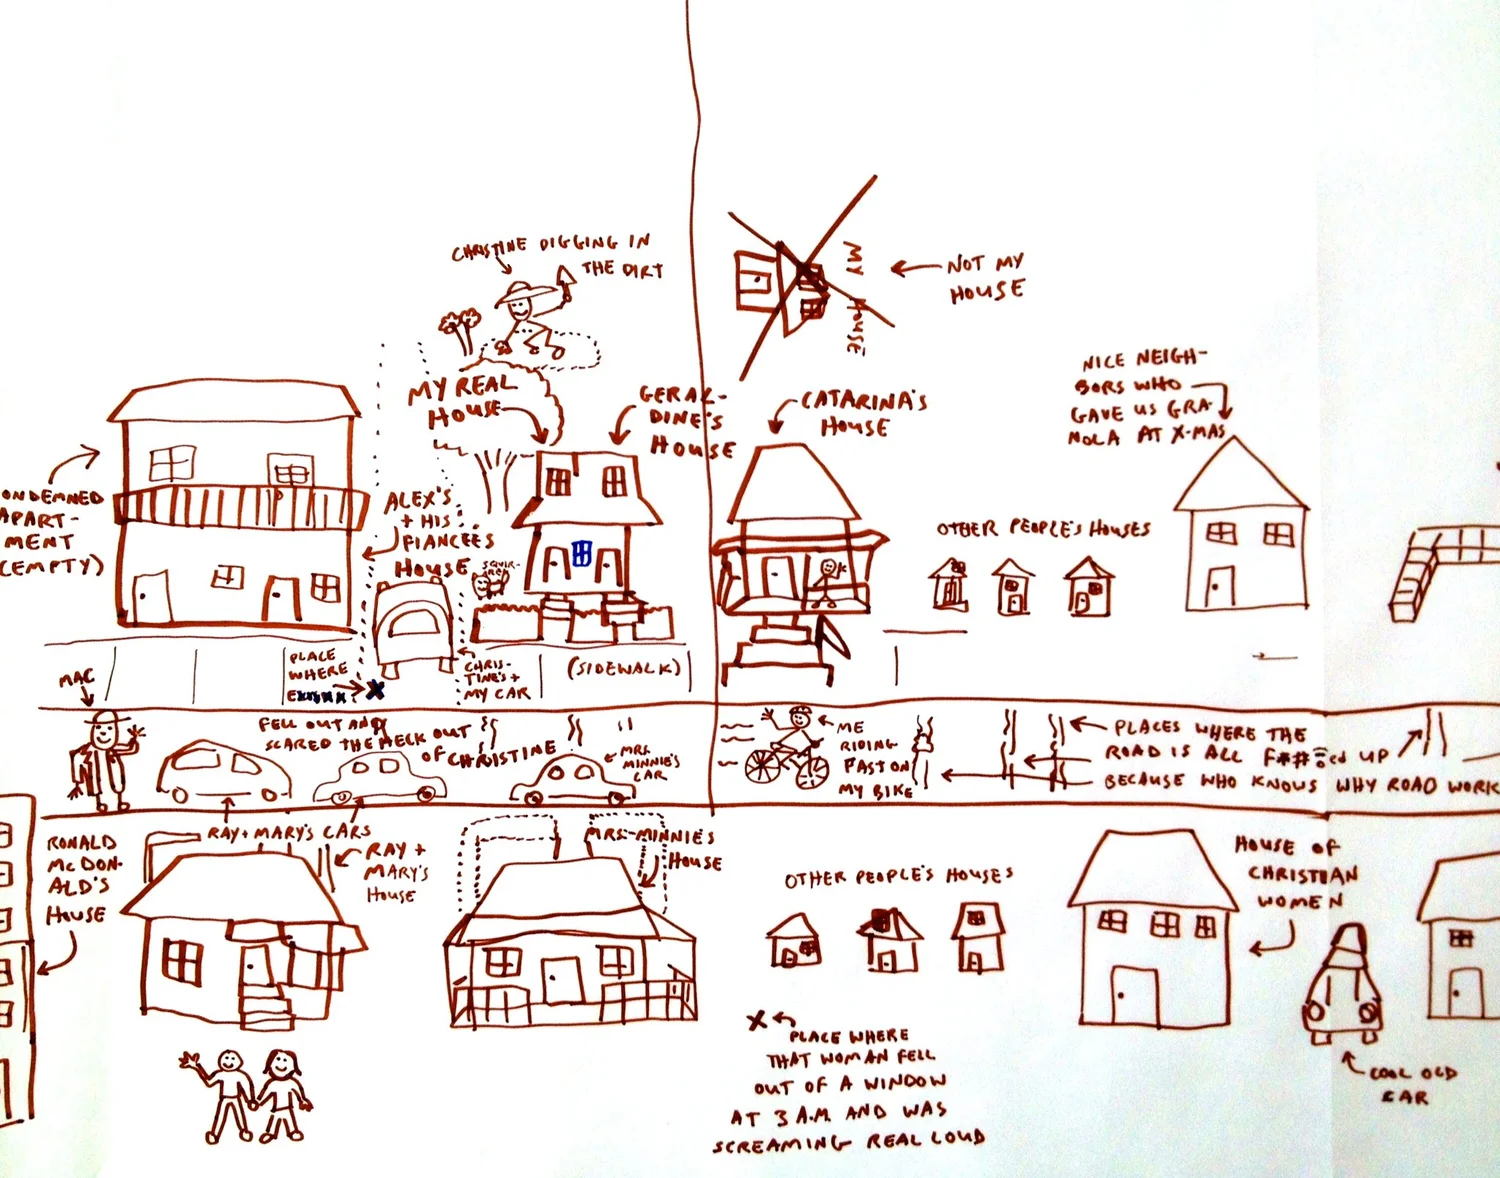 CHRISTINE DIGGING IN
THE DIRT
MY HOUSE
NOT MY
HOUSE
MY REAL
HOUSE
GERAL-
DINE'S
HOUSE
CATARINA'S
HOUSE
NICE NEIGH-
BORS WHO
GAVE US GRA-
NOLA AT X-MAS
ONDEMNED
APART-
MENT
(EMPTY)
ALEX'S
+ HIS
FIANCEES
HOUSE
SQUIR-
REL
OTHER PEOPLE'S HOUSES
PLACE
WHERE
X
CHRIS-
TINE'S +
MY CAR
(SIDEWALK)
MAC
FELL OUT AND
SCARED THE HECK OUT
OF CHRISTINE
MRS.
MINNIE'S
CAR
ME
RIDING
PAST ON
MY BIKE
PLACES WHERE THE
ROAD IS ALL F##ED UP
BECAUSE WHO KNOWS WHY ROAD WORK
RONALD
McDON-
ALD'S
HOUSE
RAY + MARY'S CARS
RAY +
MARY'S
HOUSE
MRS. MINNIE'S
HOUSE
OTHER PEOPLE'S HOUSES
HOUSE OF
CHRISTIAN
WOMEN
X
PLACE WHERE
THAT WOMAN FELL
OUT OF A WINDOW
AT 3 A.M. AND WAS
SCREAMING REAL LOUD
COOL OLD
CAR